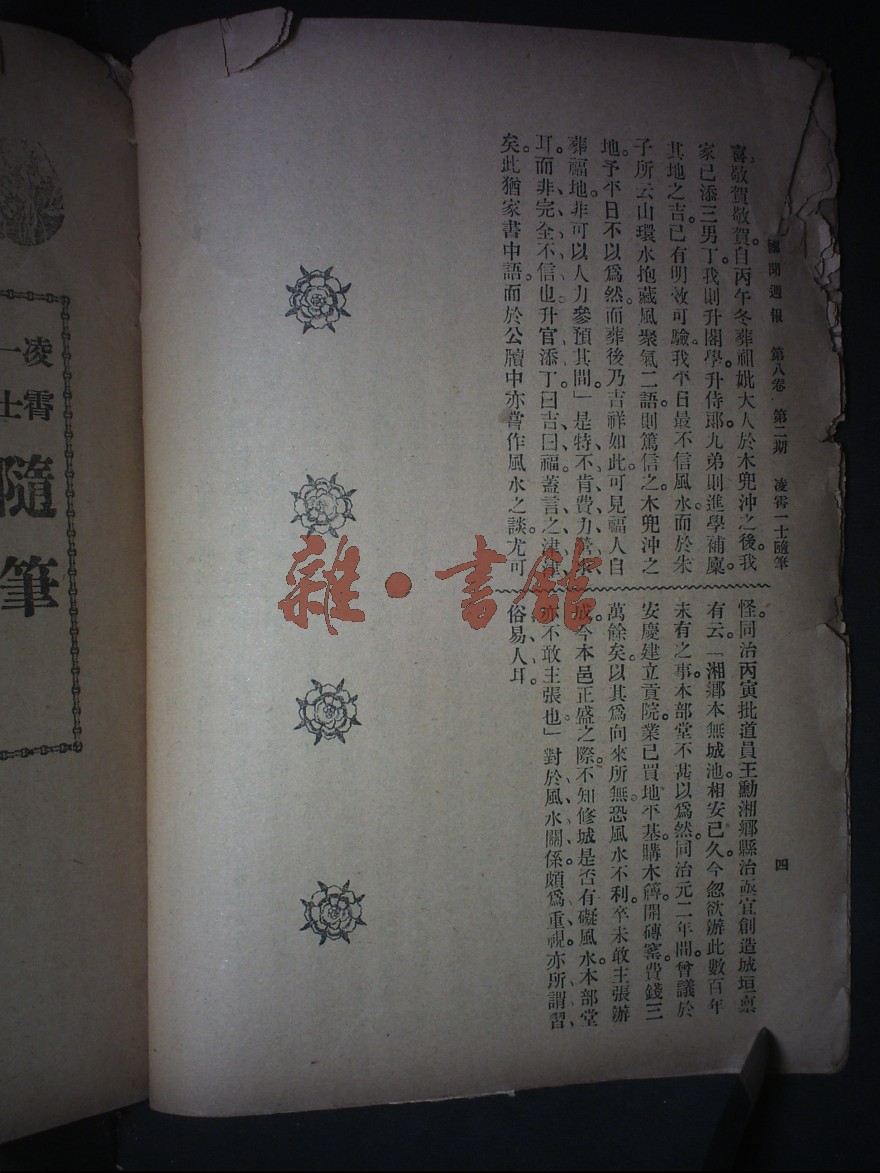 國聞週報　第八卷　第二期　凌霄一士隨筆
四
喜敬賀敬賀。自丙午冬葬祖妣大人於木兜沖之後。我
家已添三男丁。我則升閣學升侍郎。九弟則進學補廩。
其地之吉。已有明效可驗。我平日最不信風水。而於朱
子所云山環水抱藏風聚氣二語。則篤信之。木兜沖之
地。予平日不以爲然。而葬後乃吉祥如此。可見福人自
葬福地。非可以人力參預其間。」是特不肯費力營求
耳。而非完全不信也。升官添丁。曰吉曰福。蓋言之津津
矣。此猶家書中語。而於公牘中亦嘗作風水之談。尤可
怪。同治丙寅批道員王勳湘鄉縣治亟宜創造城垣禀
有云。「湘鄉本無城池。相安已久。今忽欲辦此數百年
未有之事。本部堂不甚以爲然。同治元二年間。曾議於
安慶建立貢院。業已買地平基。購木簰。開磚窰。費錢三
萬餘矣。以其爲向來所無。恐風水不利。卒未敢主張辦
成。今本邑正盛之際。不知修城是否有礙風水。本部堂
亦不敢主張也。」對於風水關係。頗爲重視。亦所謂習
俗易人耳。
凌霄
一士
隨筆
雜·書館